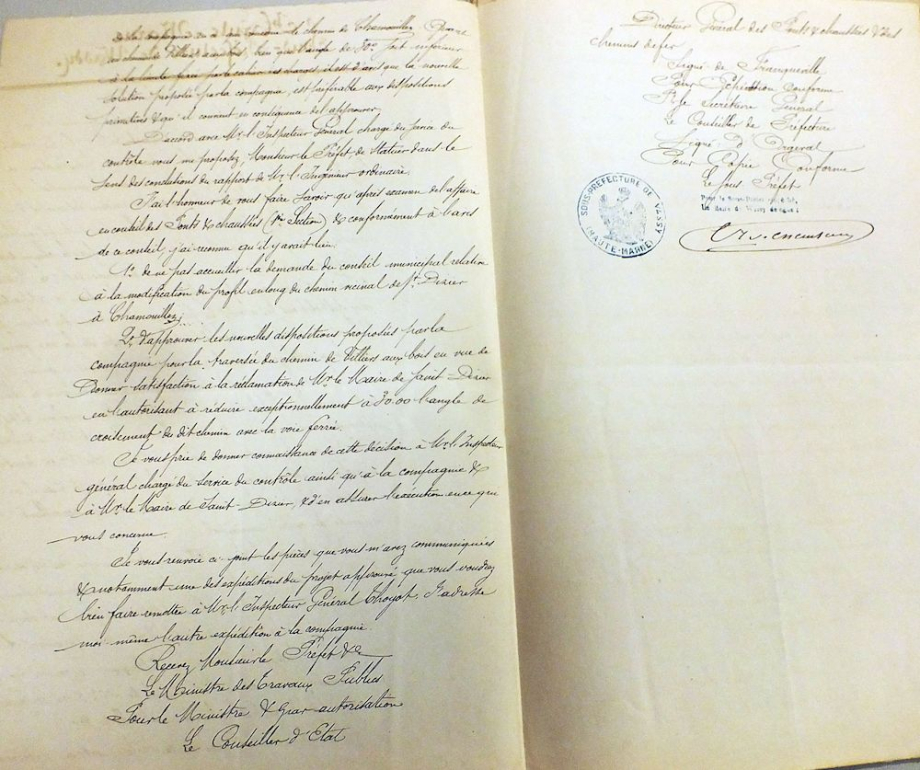 le chemin de Chamouilley.
le chemin de Villiers aux bois, bien que l'angle de 30° soit inférieur
à la limite fixée par le cahier des charges, il est d'avis que la nouvelle
solution proposée par la compagnie, est préférable aux dispositions
primitives & qu'il convient en conséquence de l'approuver.
D'accord avec Mr. l'Inspecteur Général chargé du service du
contrôle vous me proposez, Monsieur le Préfet de statuer dans le
sens des conditions du rapport de Mr. l'Ingénieur ordinaire.
J'ai l'honneur de vous faire savoir qu'après examen de l'affaire
en conseil des Ponts & chaussées (Section) & conformément à l'avis
de ce conseil, j'ai reconnu qu'il y avait lieu.
1º de ne pas accueillir la demande du conseil municipal relative
à la modification du profil en long du chemin vicinal de St. Dizier
à Chamouilley;
2º d'approuver les nouvelles dispositions proposées par la
compagnie pour la traversée du chemin de Villiers aux bois en vue de
Donner satisfaction à la réclamation de Mr. le Maire de Saint-Dizier
en l'autorisant à réduire exceptionnellement à 30.00 l'angle de
croisement du dit chemin avec la voie ferrée.
Je vous prie de donner connaissance de cette décision à Mr. l'Inspecteur
général chargé du service du contrôle ainsi qu'à la compagnie &
à Mr. le Maire de Saint-Dizier, & d'en assurer l'exécution en ce qui
vous concerne
Je vous renvoie ci-joint les pièces que vous m'avez communiquées
& notamment une des expéditions du projet approuvé que vous voudrez
bien faire remettre à Mr. l'Inspecteur Général J'adresse
moi-même l'autre expédition à la compagnie.
Recevez Monsieur le Préfet &a
Le Ministre des Travaux Publics
Pour le Ministre & par autorisation
Le Conseiller d'Etat
Directeur Général des Ponts & chaussées & des
chemins de fer
Signé de Franqueville
Pour Expédition conforme
Pr. le Secrétaire Général
Le Conseiller de Préfecture
Signé D'Orgeval
Pour Copie Conforme
Le Sous Préfet
SOUS-PRÉFECTURE DE VASSY
(HAUTE-MARNE)